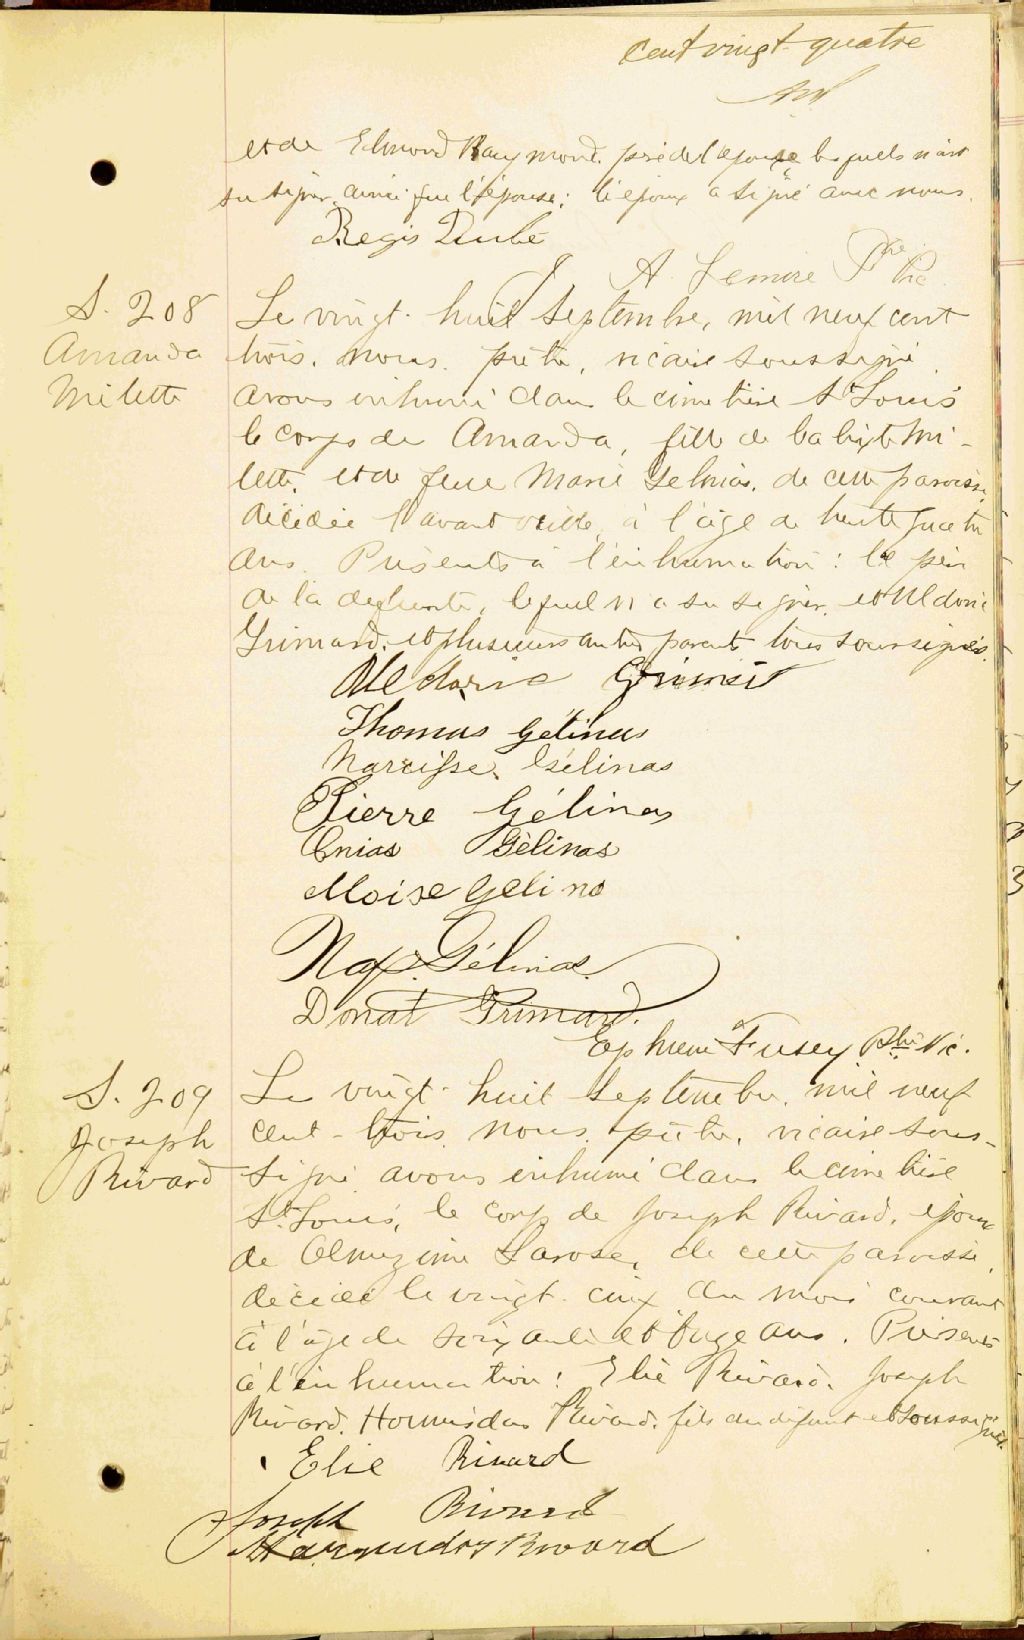 cent vingt-quatre
et de Edmond Raymond. père de l'épouse lesquels n'ont
su signer. ainsi que l'épouse; l'époux a signé avec nous.
Régis Dubé
J. A. Lemire Ptre Vic
S. 208
Amanda
Milette
Le vingt-huit Septembre, mil neuf cent
trois. nous. prêtre, vicaire soussigné
avons inhumé dans le cimetière St Louis
le corps de Amanda, fille de Baptiste Mi-
lette. et de feue Marie Gelinas. de cette paroisse,
décédée l'avant veille, à l'âge de trente quatre
ans. Présents à l'inhumation: le père
de la défunte, lequel n'a su signer. et Aldoric
Grimard. et plusieurs autres parents tous soussignés.
Grimard
Thomas Gélinas
Narcisse Gélinas
Pierre Gélinas
Enias Gélinas
Moise Gelina
Nap. Gélinas
Donat Grimard.
Ephrem Fusey Ptre Vic.
S. 209
Joseph
Rivard
Le vingt-huit Septembre. mil neuf
cent-trois. nous. prêtre. vicaire sous-
signé avons inhumé dans le cimetière
St Louis, le corps de Joseph Rivard. époux
de Olmezime Larose, de cette paroisse,
décédé le vingt-cinq du mois courant
à l'âge de soixante et onze ans. Présents
à l'inhumation: Elie Rivard. Joseph
Rivard. Hormisdas Rivard. fils du défunt et soussignés.
Elie Rivard
Joseph Rivard
Rivard